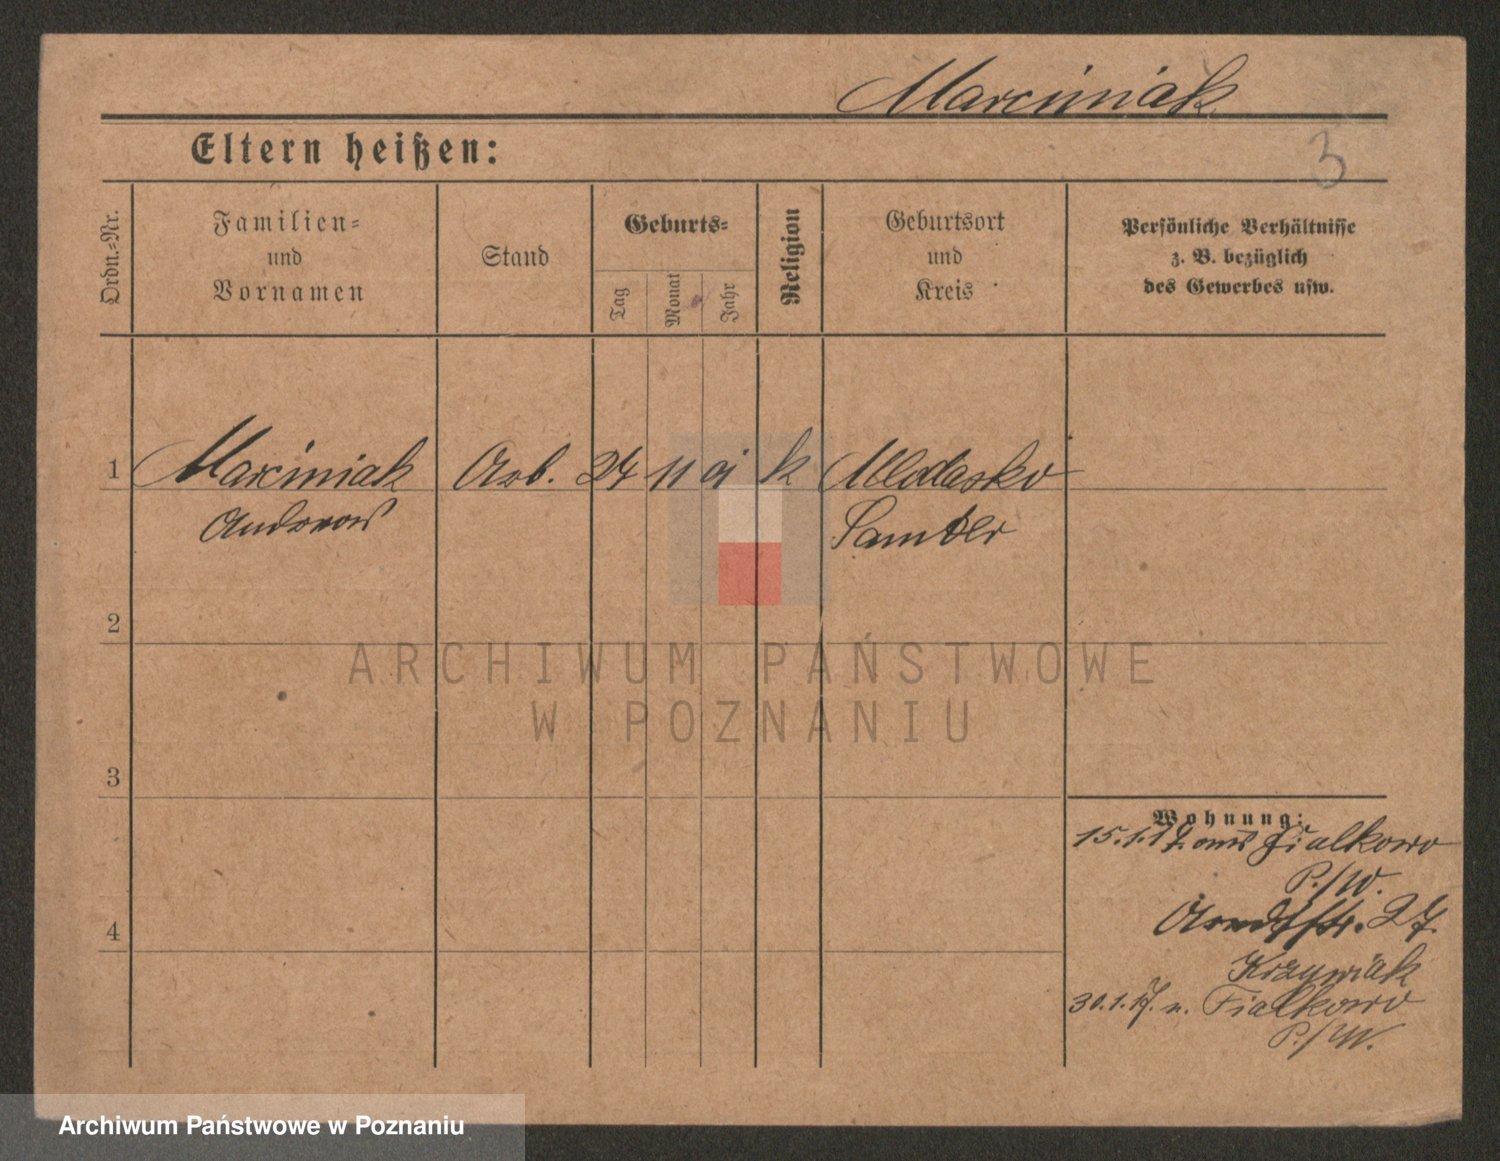 Marciniak
3
Eltern heißen:
Ordn.-Nr.
Familien-
und
Vornamen
Stand
Geburts-
Tag
Monat
Jahr
Religion
Geburtsort
und
Kreis
Persönliche Verhältnisse
z. B. bezüglich
des Gewerbes usw.
1 Marciniak Arb. 24 11 01 k Mlodasko
Andreas Samter
2
3
4
Wohnung:
15.1.17. aus Fialkowo
P./W.
Arndtstr. 27.
Krzywiak
30.1.17. n. Fialkowo
P./W.
ARCHIWUM PAŃSTWOWE
W POZNANIU
Archiwum Państwowe w Poznaniu